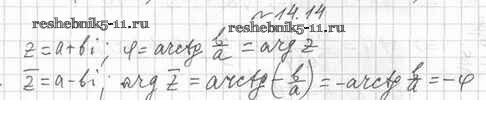 №14.14
reshebnik5-11.ru reshebnik5-11.ru
z = a+bi; φ = arctg b/a = arg z
z̄ = a-bi; arg z̄ = arctg(-b/a) = -arctg b/a = -φ